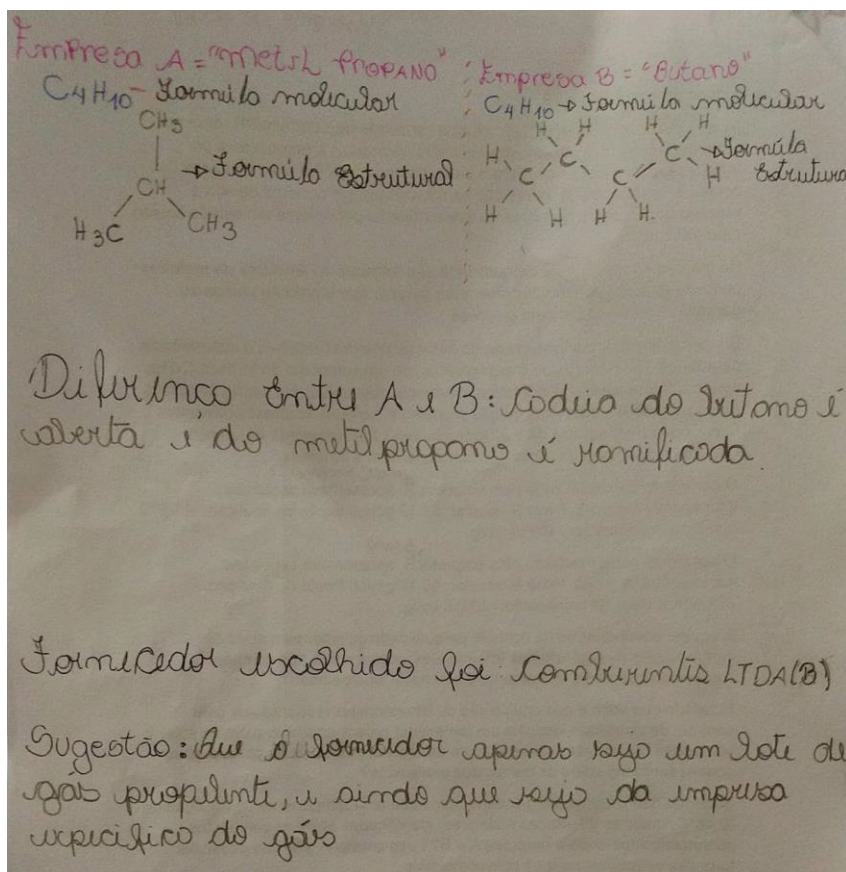 Empresa A = "Metil Propano"
C4H10 - Formúla molicular
CH3
CH → Formúla Estrutural
H3C CH3
Empresa B = "Butano"
C4H10 → Formúla molicular
H H H H
H C C → Formúla
C C H Estrutura
H H H H.
Diferença Entre A e B: Cadeia do Butano é
aberta e do metilpropano é ramificada.
Fornecedor escolhido foi: Comburentis LTDA(B)
Sugestão: Que o fornecedor apenas seja um lote de
gás propelente, e ainda que seja da empresa
específica do gás